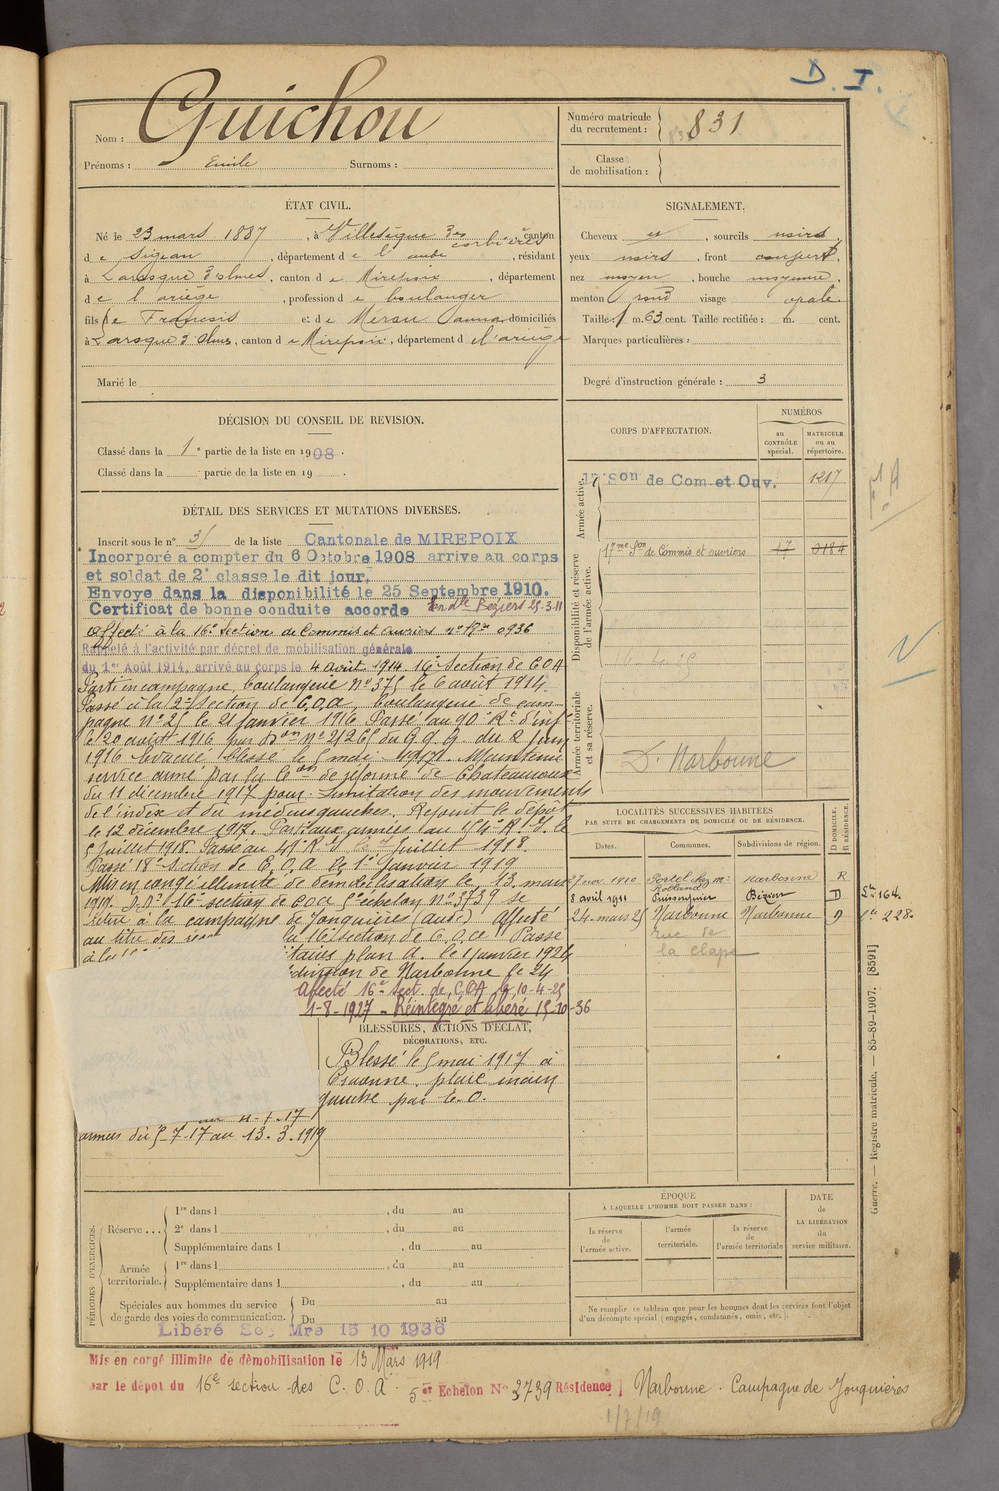 D. I.
Nom : Guichou
Prénoms : Emile Surnoms :
Numéro matricule du recrutement : 831
Classe de mobilisation :
ÉTAT CIVIL.
Né le 23 mars 1887, à Villesèque des corbières, canton
de Sigean, département de l'aude, résidant
à Laroque d'olmes, canton de Mirepoix, département
de l'ariège, profession de boulanger
fils de François et de domiciliés
à Laroque d'Olmes, canton de Mirepoix, département de l'ariège
Marié le
SIGNALEMENT.
Cheveux et, sourcils noirs
yeux noirs, front couvert,
nez moyen, bouche moyenne,
menton rond visage ovale.
Taille : 1 m. 63 cent. Taille rectifiée : m. cent.
Marques particulières :
Degré d'instruction générale : 3
DÉCISION DU CONSEIL DE REVISION.
Classé dans la 1e partie de la liste en 1908.
Classé dans la partie de la liste en 19 .
DÉTAIL DES SERVICES ET MUTATIONS DIVERSES.
Inscrit sous le n° 31 de la liste Cantonale de MIREPOIX
Incorporé a compter du 6 Octobre 1908 arrive au corps
et soldat de 2e classe le dit jour.
Envoye dans la disponibilité le 25 Septembre 1910.
Certificat de bonne conduite accorde
affecté à la 16e Section de Commis et ouvriers
Rappelé à l'activité par décret de mobilisation générale
du 1er Août 1914, arrivé au corps le 4 août 1914. 16e Section de C O A
Parti en campagne, boulangerie n° 375 le 6 août 1914.
Passé à la 2e section de C.O.A, boulangerie de cam-
pagne n° 25 le 21 janvier 1916. Passé au 90e Rt d'inf
le 20 août 1916 par Don n° 21265 du G.Q.G. du 2 juin
1916. Evacué, blessé le 5 mai 1917. Maintenu
service armé par la Con de réforme de Chateauroux
du 11 décembre 1917 pour limitation des mouvements
de l'index et du médius gauches. Rejoint le dépôt
le 12 décembre 1917. Parti aux armées au R.I. le
5 juillet 1918. Passé au R.I. juillet 1918.
Passé 18e Section de C.O.A le 1er Janvier 1919
Mis en congé illimité de démobilisation le 13 mars
1919. 16e section de COA 5e échelon n° 3739 se
retire à la campagne de Jonquières (aude) Affecté
au titre des la 16e section de C.O.A Passé
à la plan A. le 1 janvier 1924
de Narbonne le 24
Affecté 16e Sect. de COA le 10-4-25
1-8-1927 - Réintégré et libéré 15-10-36
BLESSURES, ACTIONS D'ÉCLAT,
DÉCORATIONS, ETC.
Blessé le 5 mai 1917 à
Craonne, plaie main
gauche par é.o.
armées du 5-7-17 au 13.3.1919
CORPS D'AFFECTATION.
NUMÉROS
au CONTRÔLE spécial.
MATRICULE ou au répertoire.
Armée active.
son de Com et Ouv. 1217
Disponibilité et réserve de l'armée active.
17me Son de Commis et ouvriers 17 0184
Armée territoriale et sa réserve.
D. Narbonne
LOCALITÉS SUCCESSIVES HABITÉES
PAR SUITE DE CHANGEMENTS DE DOMICILE OU DE RÉSIDENCE.
Dates. Communes. Subdivisions de région. D DOMICILE. R RÉSIDENCE.
7 nov 1910 Portel Narbonne R
8 avril 1911 Puisserguier Béziers D 164.
24 mars 25 Narbonne Narbonne D 228.
rue de
la clape
Guerre. — Registre matricule. — 85-89-1907. [8591]
PÉRIODES D'EXERCICES.
Réserve ... 1re dans l , du au
2e dans l , du au
Supplémentaire dans l , du au
Armée territoriale. 1re dans l , du au
Supplémentaire dans l , du au
Spéciales aux hommes du service de garde des voies de communication. Du au
Du au
Libéré Mre 15 10 1936
ÉPOQUE
À LAQUELLE L'HOMME DOIT PASSER DANS :
la réserve de l'armée active.
l'armée territoriale.
la réserve de l'armée territoriale
DATE de LA LIBÉRATION du service militaire.
Ne remplir ce tableau que pour les hommes dont les services font l'objet
d'un décompte spécial (engagés, condamnés, omis, etc.).
Mis en congé illimité de démobilisation le 13 Mars 1919
par le dépot du 16e section des C.O.A. 5e Echelon N° 3739 Résidence Narbonne. Campagne de Jonquières
1/7/19